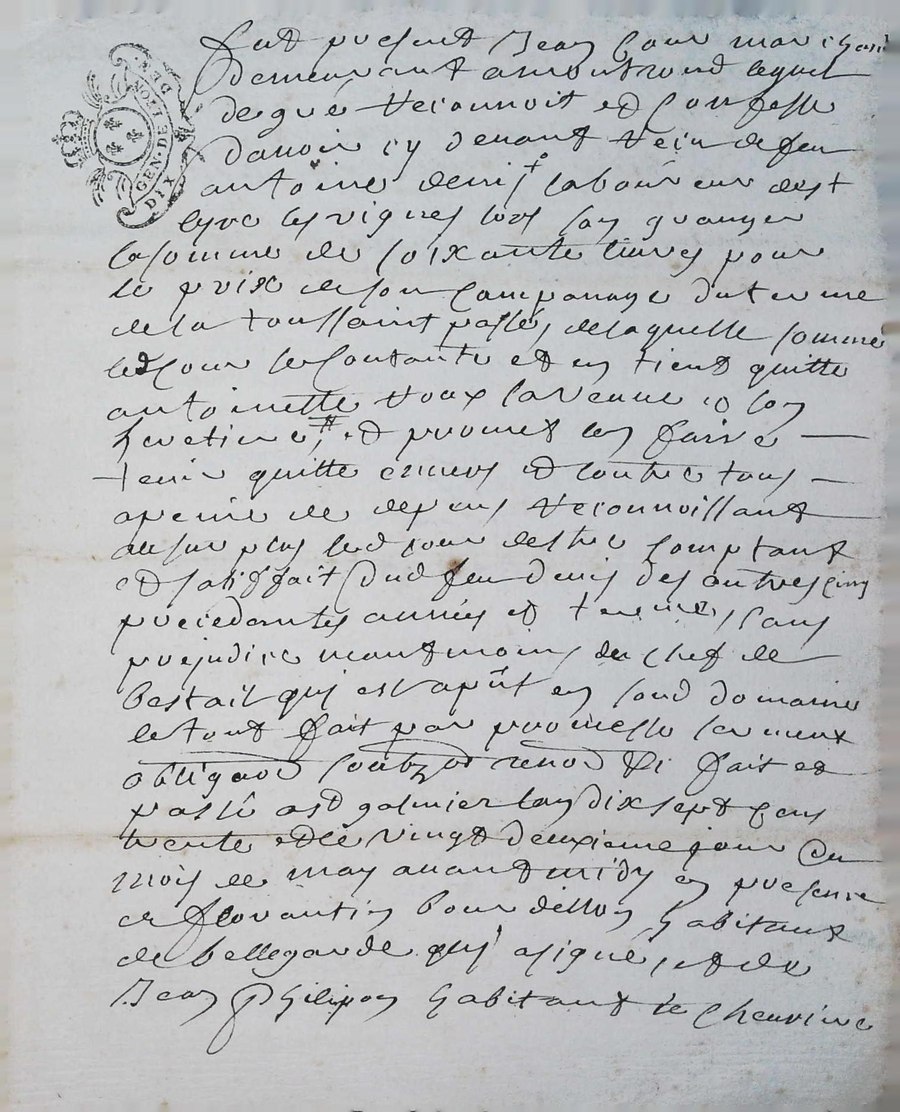 GEN. DE LYON
DIX DE R.
fut present Jean Cour marchand
demeurant a montrond lequel
de gré reconnoit et confesse
d'avoir cy devant receu de feu
antoine denis laboureur de st
cyre les vignes lors son granger
la somme de soixante livres pour
le prix de son campanage du terme
de la toussaint passé, de laquelle somme
led Cour se contante et en tient quitte
antoinette roux sa veuve et son
heretiere, et promet en faire
tenir quitte envers et contre tous
a peine de depens reconnoissant
au surplus led cour destre comptant
et satisfait dud feu denis des autres cinq
precedantes années et termes, sans
prejudice neantmoins du chef de
bestail qui est apñt en sond domaine
le tout fait par promesse serment
obligaon soubz on renon &c fait et
passé a st galmier lan dix sept cens
trente et le vingt deuxieme jour du
mois de may avant midy en presence
de florantin bourdellon habitant
de bellegarde qui a signé, et de
Jean philipon habitant de chevrine